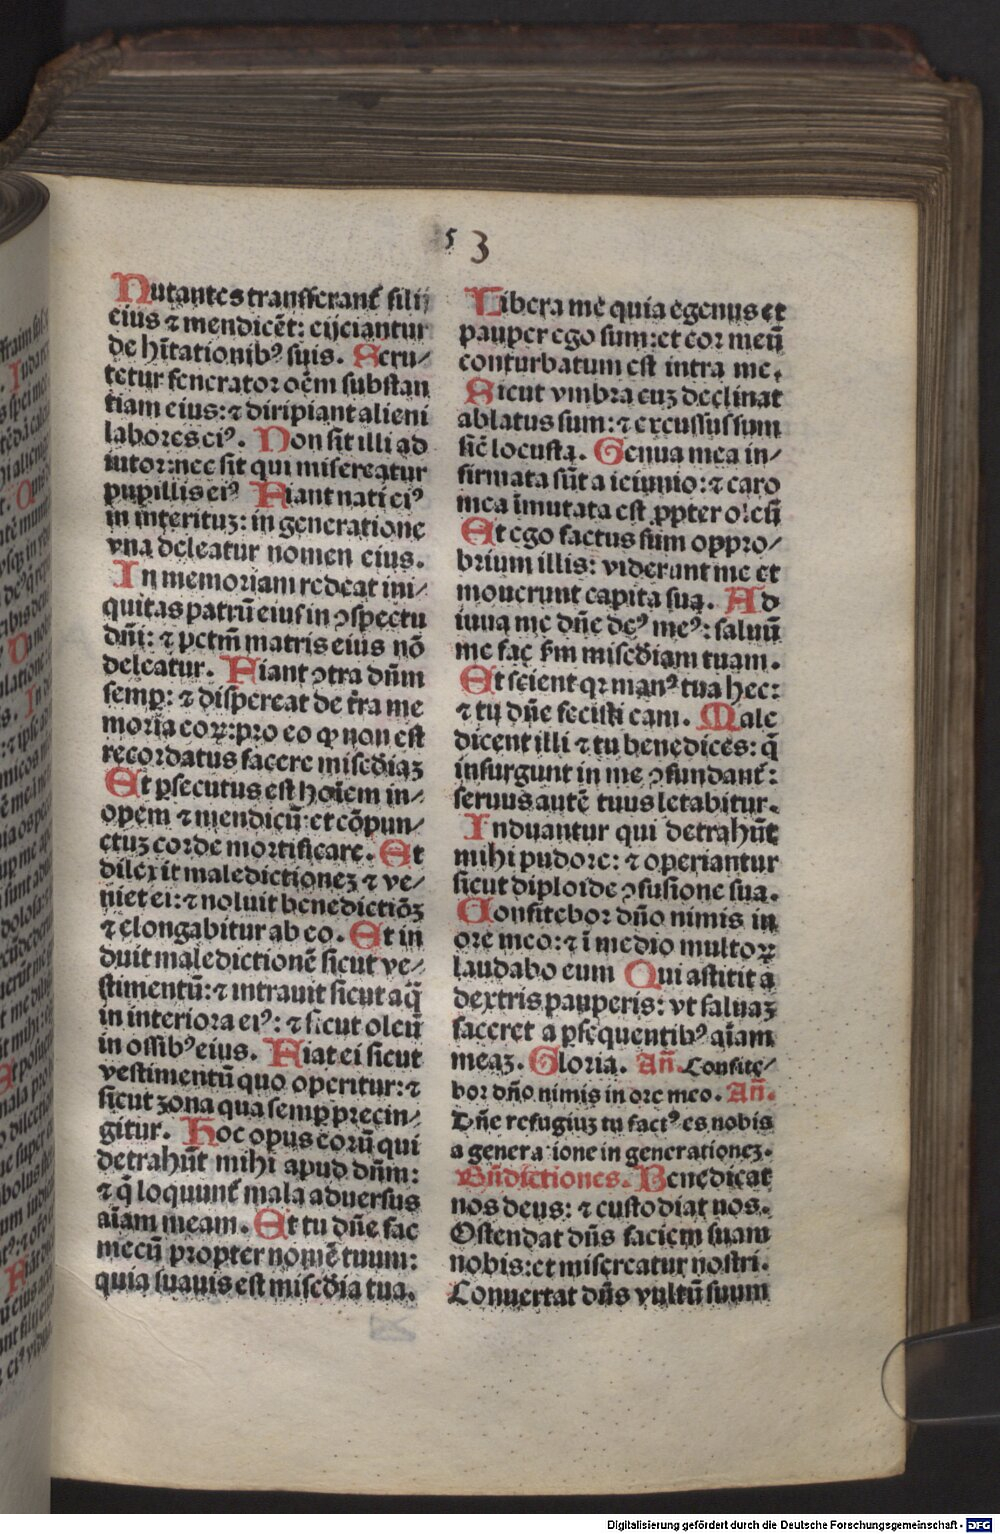 53
Nutantes transferant᷑ filij
eius ⁊ mendicēt: eijciantur
de hītationibꝰ suis. Scru⸗
tetur fenerator oēm substan
tiam eius: ⁊ diripiant alieni
labores eiꝰ. Non sit illi ad
iutor: nec sit qui misereatur
pupillis eiꝰ Fiant nati eiꝰ
in interituꝫ: in generatione
vna deleatur nomen eius.
In memoriam redeat ini⸗
quitas patrū eius in ꝯspectu
dn̄i: ⁊ pctm̄ matris eius nō
deleatur. Fiant ꝯtra dn̄m
semꝑ: ⁊ dispereat de t̄ra me
moria eoꝝ: pro eo ꝙ non est
recordatus facere misc̄diaꝫ
Et ꝑsecutus est hoīem in⸗
opem ⁊ mendicū: et cōpun⸗
ctuꝫ corde mortificare. Et
dilexit maledictioneꝫ ⁊ ve⸗
niet ei: ⁊ noluit benedictiōꝫ
⁊ elongabitur ab eo. Et in
duit maledictionē sicut ve⸗
stimentū: ⁊ intrauit sicut aq̄
in interiora eiꝰ: ⁊ sicut oleū
in ossibꝰ eius. Fiat ei sicut
vestimentū quo operitur: ⁊
sicut zona qua semꝑ precin⸗
gitur. Hoc opus eorū qui
detrahūt mihi apud dn̄m:
⁊ q̄ loquunt᷑ mala aduersus
aīam meam. Et tu dn̄e fac
mecū propter nomē tuum:
quia suauis est misc̄dia tua.
Libera me quia egenus et
pauper ego sum: et cor meū
conturbatum est intra me.
Sicut vmbra cuꝫ declinat
ablatus sum: ⁊ excussus sum
sic̄ locusta. Genua mea in⸗
firmata sūt a ieiunio: ⁊ caro
mea īmutata est ꝓpter oleū
Et ego factus sum oppro⸗
brium illis: viderunt me et
mouerunt capita sua. Ad
iuua me dn̄e deꝰ meꝰ: saluū
me fac s̄m misc̄diam tuam.
Et scient qꝛ manꝰ tua hec:
⁊ tu dn̄e fecisti eam. Male
dicent illi ⁊ tu benedices: q̄
insurgunt in me ꝯfundant᷑:
seruus autē tuus letabitur.
Induantur qui detrahūt
mihi pudore: ⁊ operiantur
sicut diploide ꝯfusione sua.
Confitebor dn̄o nimis in
ore meo: ⁊ ī medio multoꝝ
laudabo eum Qui astitit a
dextris pauperis: vt saluaꝫ
faceret a ꝑsequentibꝰ aīam
meaꝫ. Gloria. An̄. Confite⸗
bor dn̄o nimis in ore meo. An̄.
Dn̄e refugiuꝫ tu factꝰ es nobis
a generatione in generationeꝫ.
Bn̄dictiones. Benedicat
nos deus: ⁊ custodiat nos.
Ostendat dn̄s faciem suam
nobis: et misereatur nostri.
Conuertat dn̄s vultū suum
Digitalisierung gefördert durch die Deutsche Forschungsgemeinschaft - DFG